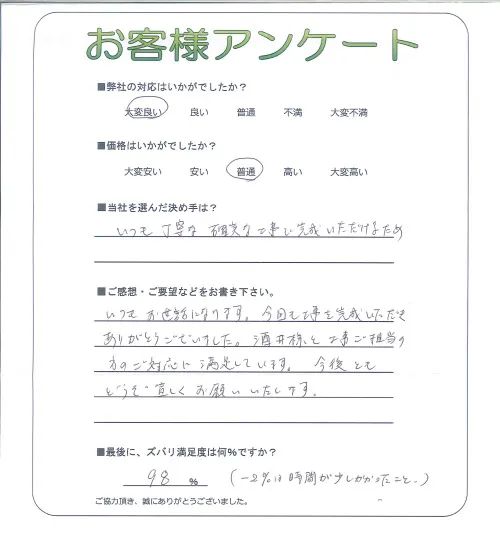 お客様アンケート
■弊社の対応はいかがでしたか？
大変良い 良い 普通 不満 大変不満
■価格はいかがでしたか？
大変安い 安い 普通 高い 大変高い
■当社を選んだ決め手は？
いつも丁寧な確実な工事で完成いただけるため
■ご感想・ご要望などをお書き下さい。
いつもお世話になります。今回も工事を完成いただき
ありがとうございました。酒井様と工事ご担当の
方のご対応に満足しています。今後とも
どうぞ宜しくお願いいたします。
■最後に、ズバリ満足度は何%ですか？
98 % (-2%は時間が少しかかったこと。)
ご協力頂き、誠にありがとうございました。